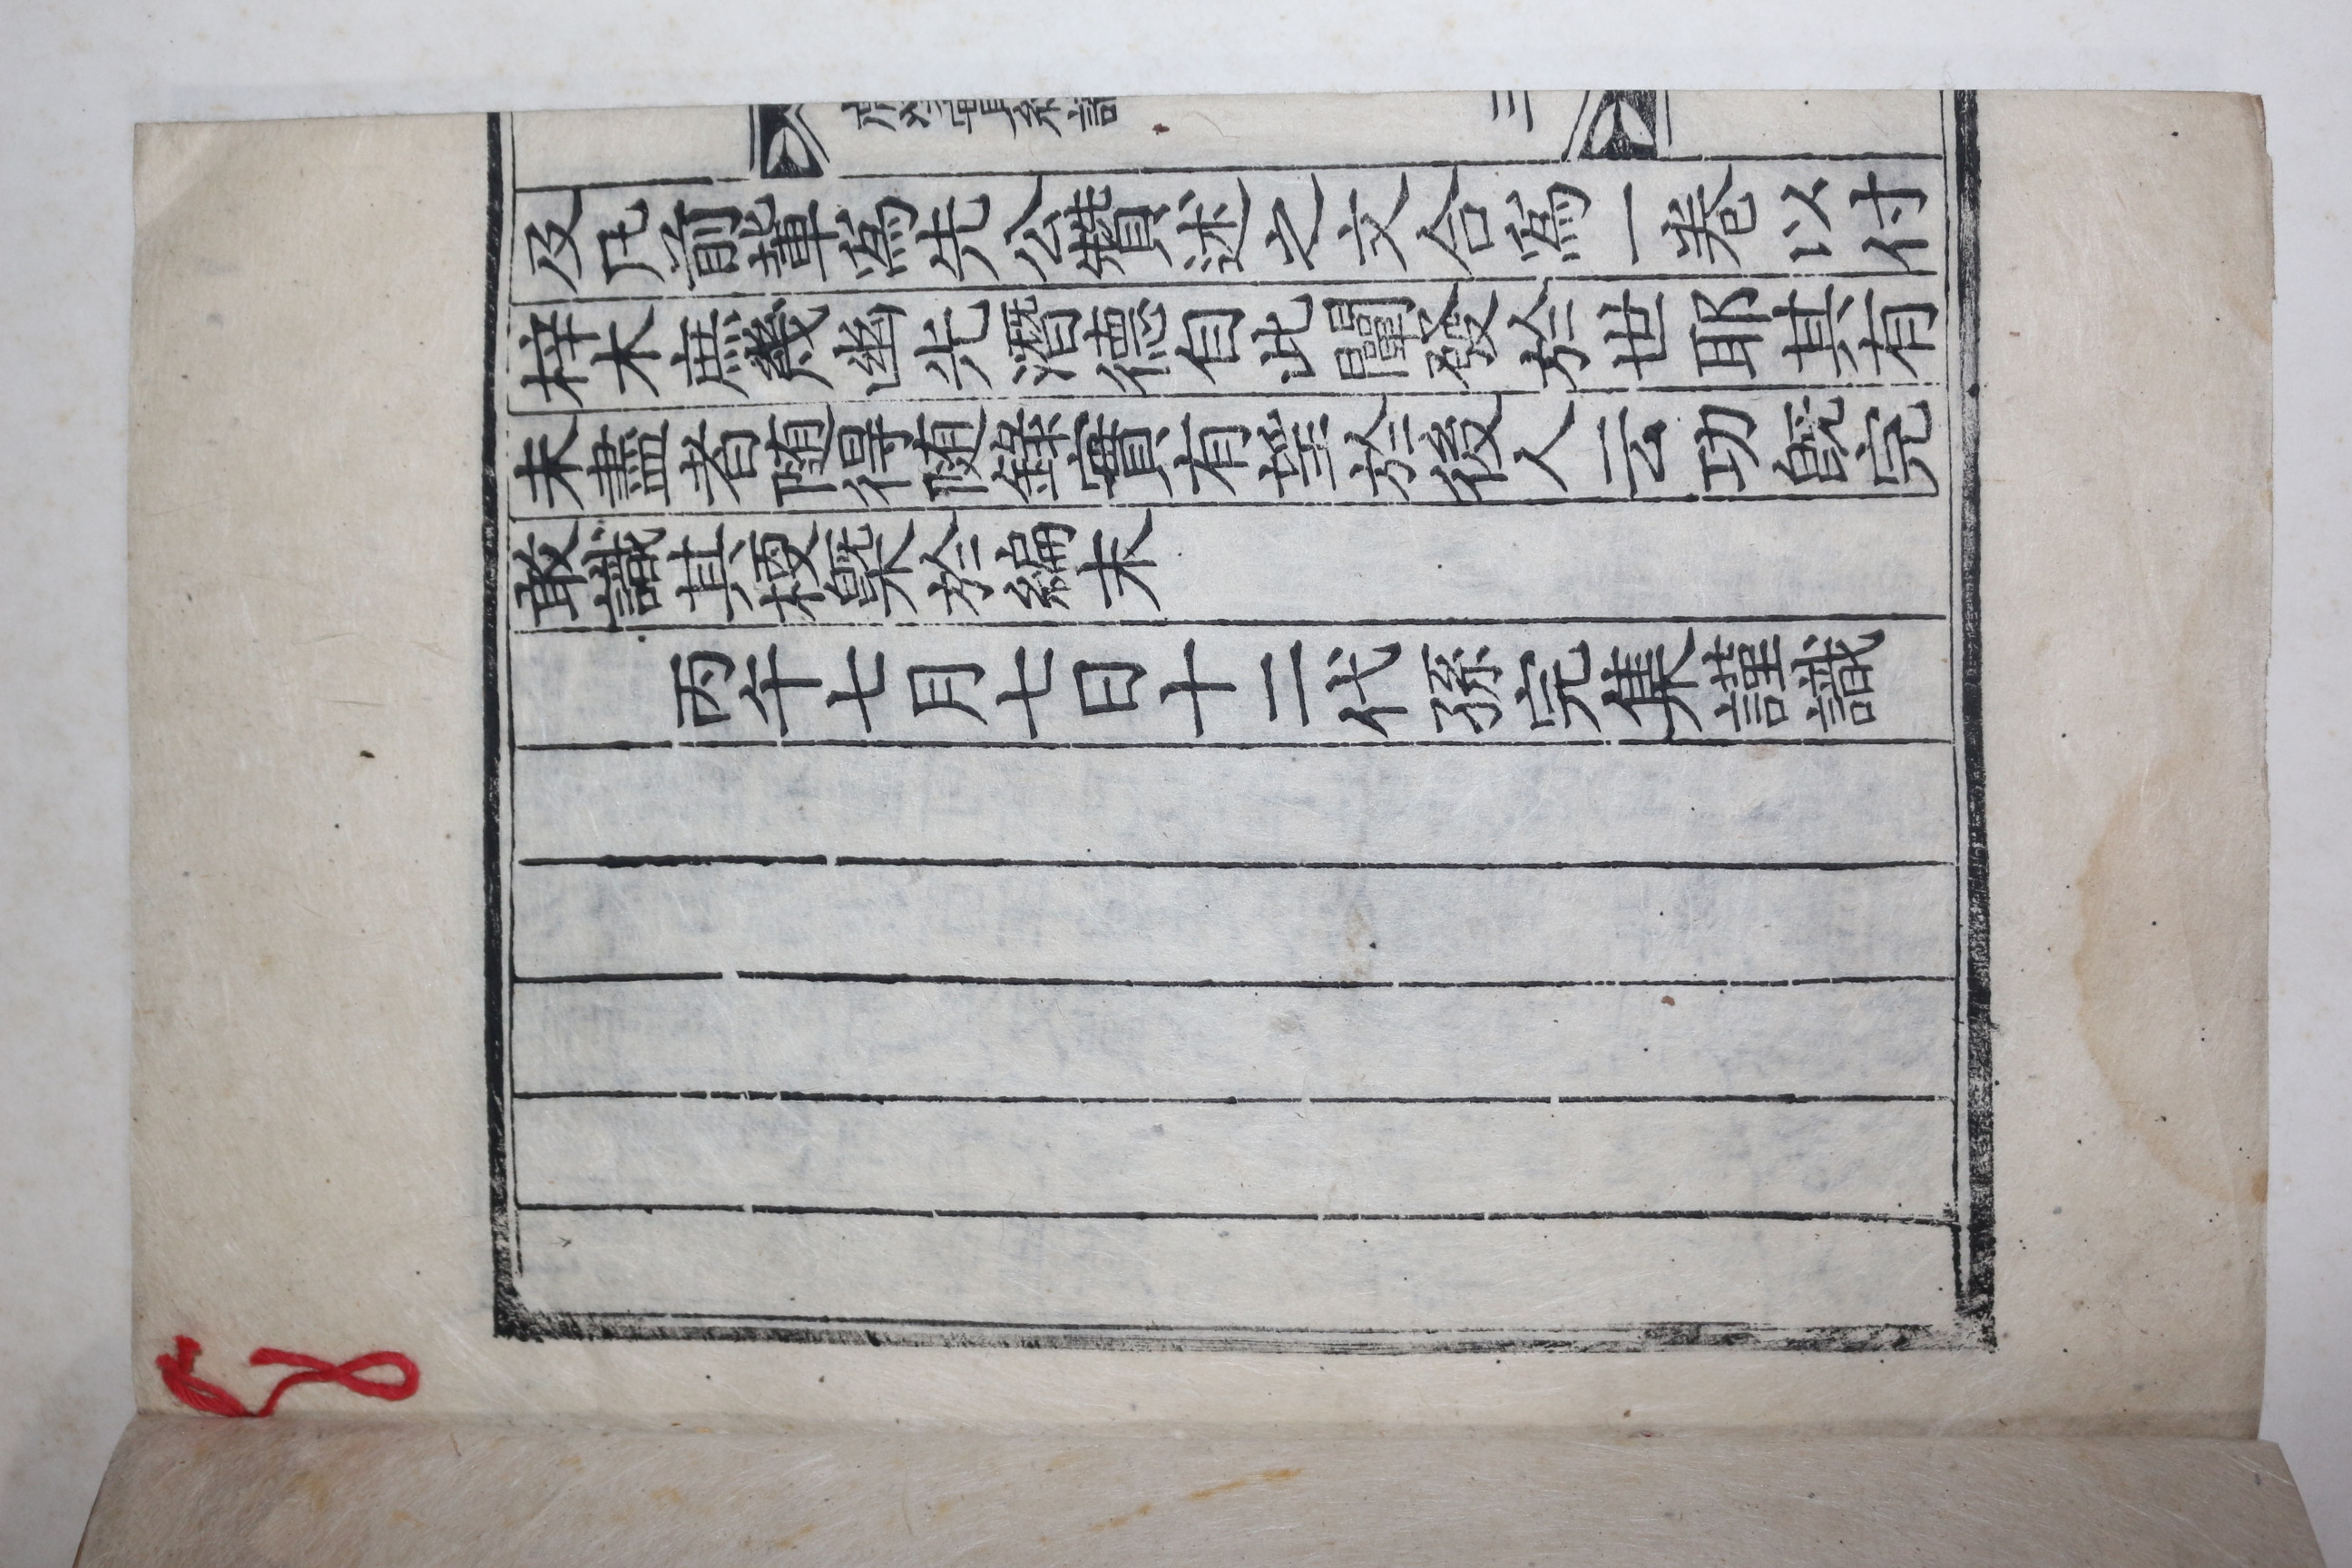 三
及凡前輩爲先公贊述之文合爲一卷以付
梓木庶幾幽光潛德自此闡發於世耶其有
未盡者随得随錄實有望於後人云功旣完
敢識其梗槩於編末
丙午七月七日十二代孫完集謹識